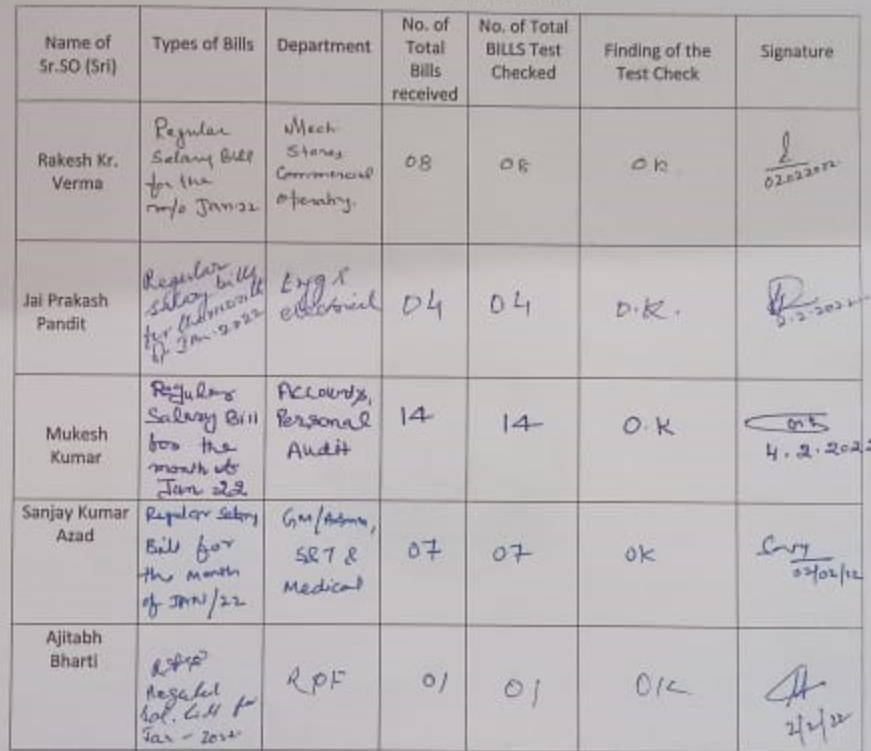 Name of Sr.SO (Sri) Types of Bills Department No. of Total Bills received No. of Total BILLS Test Checked Finding of the Test Check Signature
Rakesh Kr. Verma
Regular
Salary Bill
for the
m/o Jan 22
Mech
Stores
Commercial
operating.
08
08
OK
02022022
Jai Prakash
Pandit
Regular
salary bills
Jan. 2022
Engg &
electrical
04
04
O.K.
2.2.2022
Mukesh
Kumar
Regular
Salary Bill
for the
month of
Jan 22
Accounts,
Personal
Audit
14
14
O.K
4.2.2022
Sanjay Kumar
Azad
Regular Salary
Bill for
the month
of JAN/22
GM/Admn,
S&T &
Medical
07
07
OK
02/02/22
Ajitabh
Bharti
Regular
Sal. bill for
Jan - 2022
RPF
01
01
OK
2/2/22